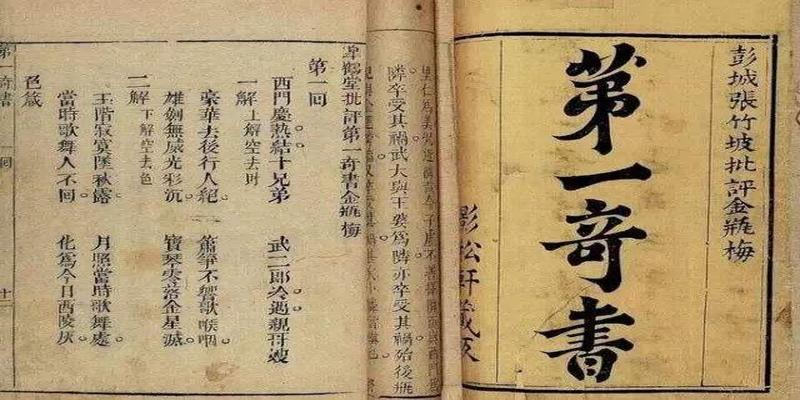 彭城張竹坡批評金瓶梅
第一奇書
影松軒藏
隣卒受其禍武大與王婆為隣亦卒受其禍始後瓶
皋鶴堂批評第一奇書金瓶梅
第一回
西門慶熱結十兄弟 武二郎冷遇親哥嫂
一解 上解空去財
豪華去後行人絕 簫箏不響歌喉咽
雄劍無威光彩沉 寶琴零落金星滅
二解 下解空去色
玉階寂寞墜秋露 月照當時歌舞處
當時歌舞人不回 化為今日西陵灰
色箴
第一奇書 一回 十一